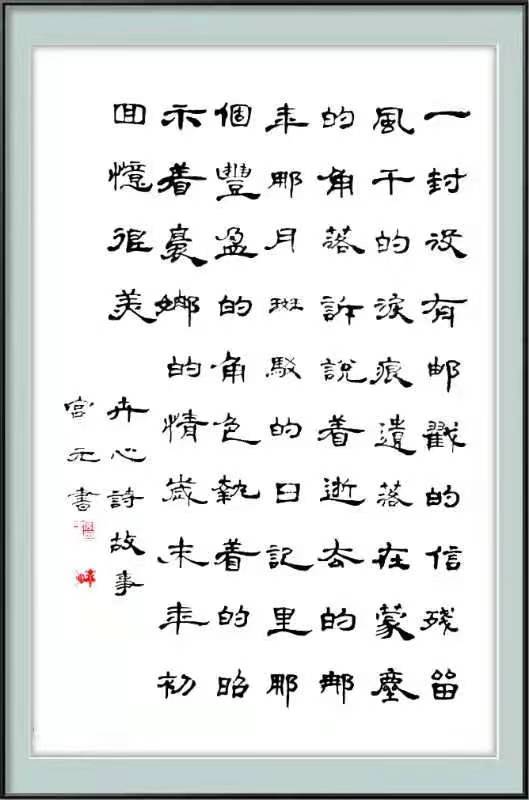 一封没有邮戳的信残留
風干的淚痕遺落在蒙塵
的角落訴説着逝去的那
年那月斑駁的日記里那
個豐盈的角色執着的昭
示着裊娜的情歲末年初
回憶很美
卉心詩故事
宮元書